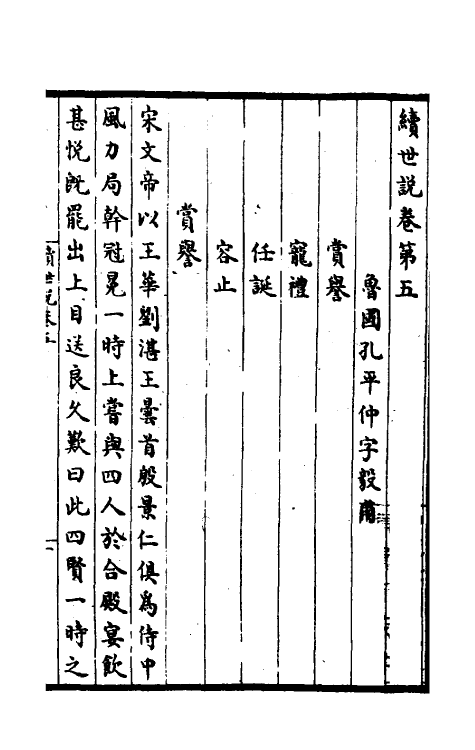 續世說卷第五
魯國孔平仲字毅甫
賞譽
寵禮
任誕
容止
賞譽
宋文帝以王華劉湛王曇首殷景仁俱為侍中
風力局幹冠冕一時上嘗與四人於合殿宴飲
甚悅旣罷出上目送良久歎曰此四賢一時之
續世說卷五
一